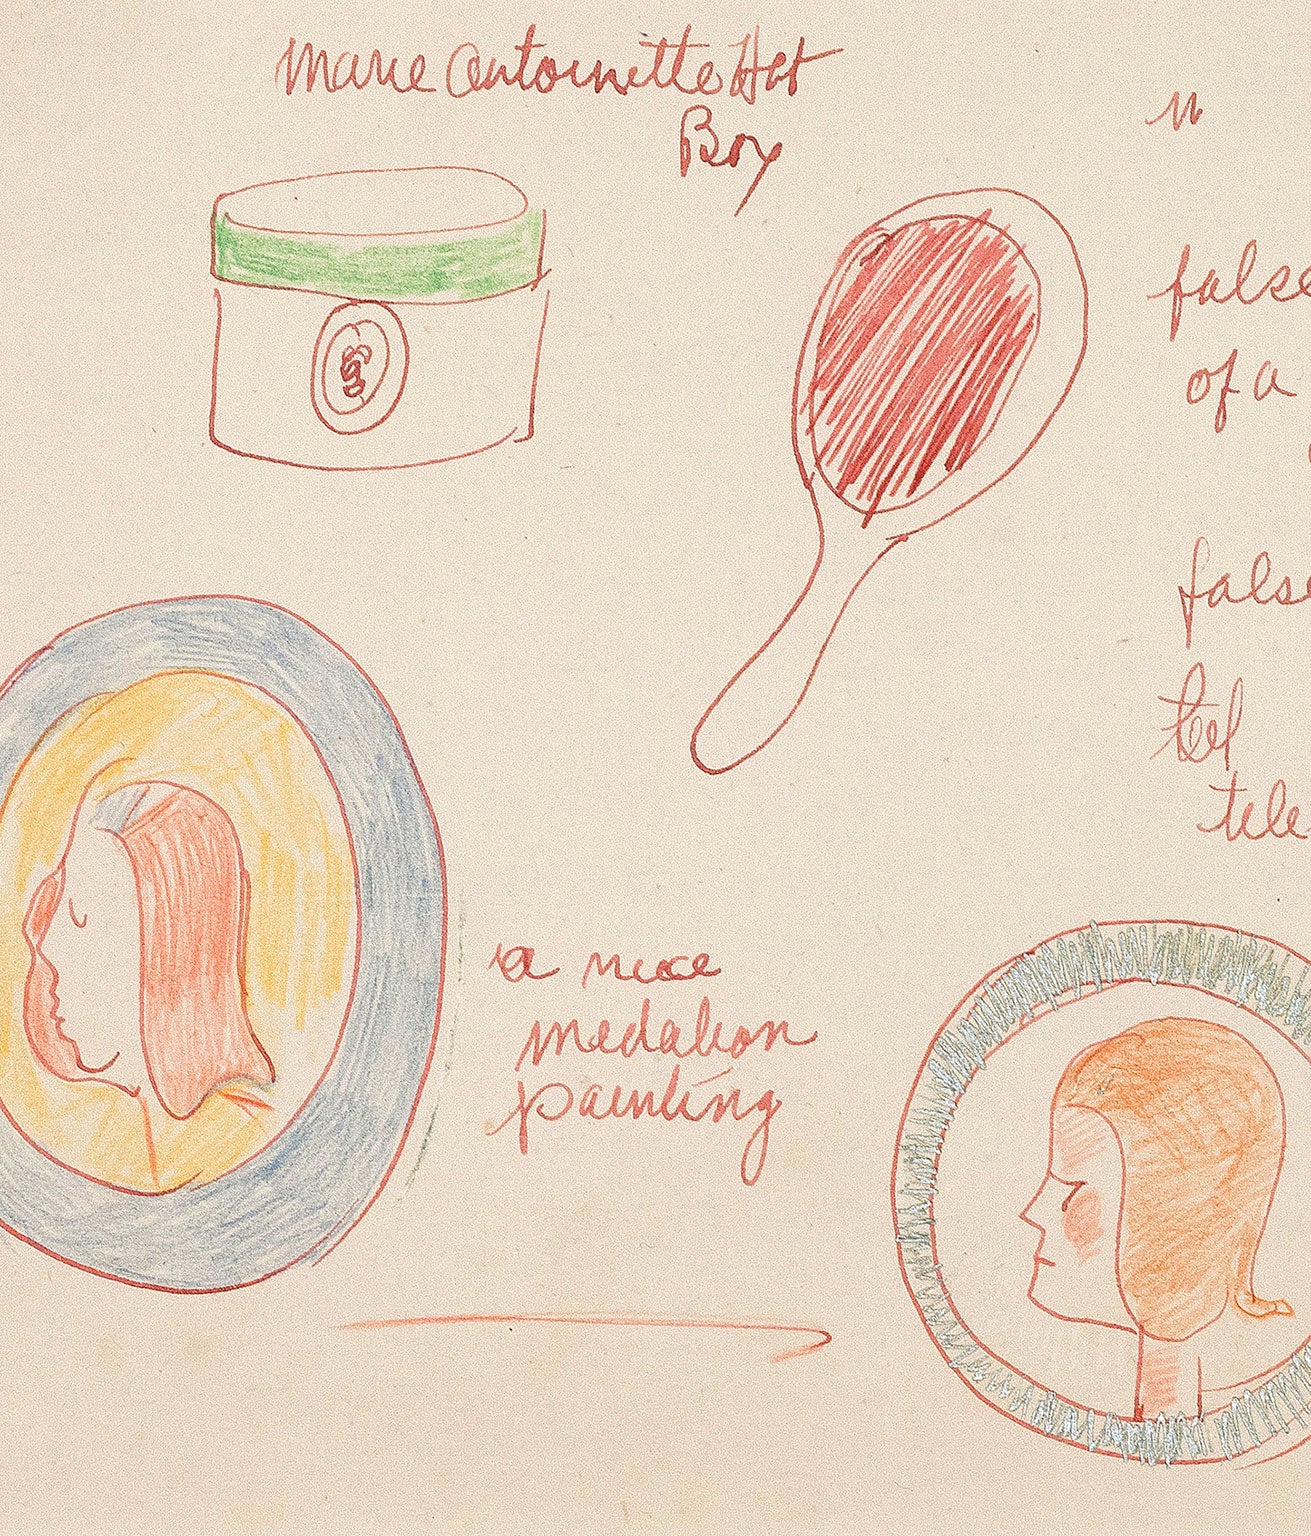 Marie Antoinette Hat
Box
a nice
medalion
painting
false
of a
false
tel
tele